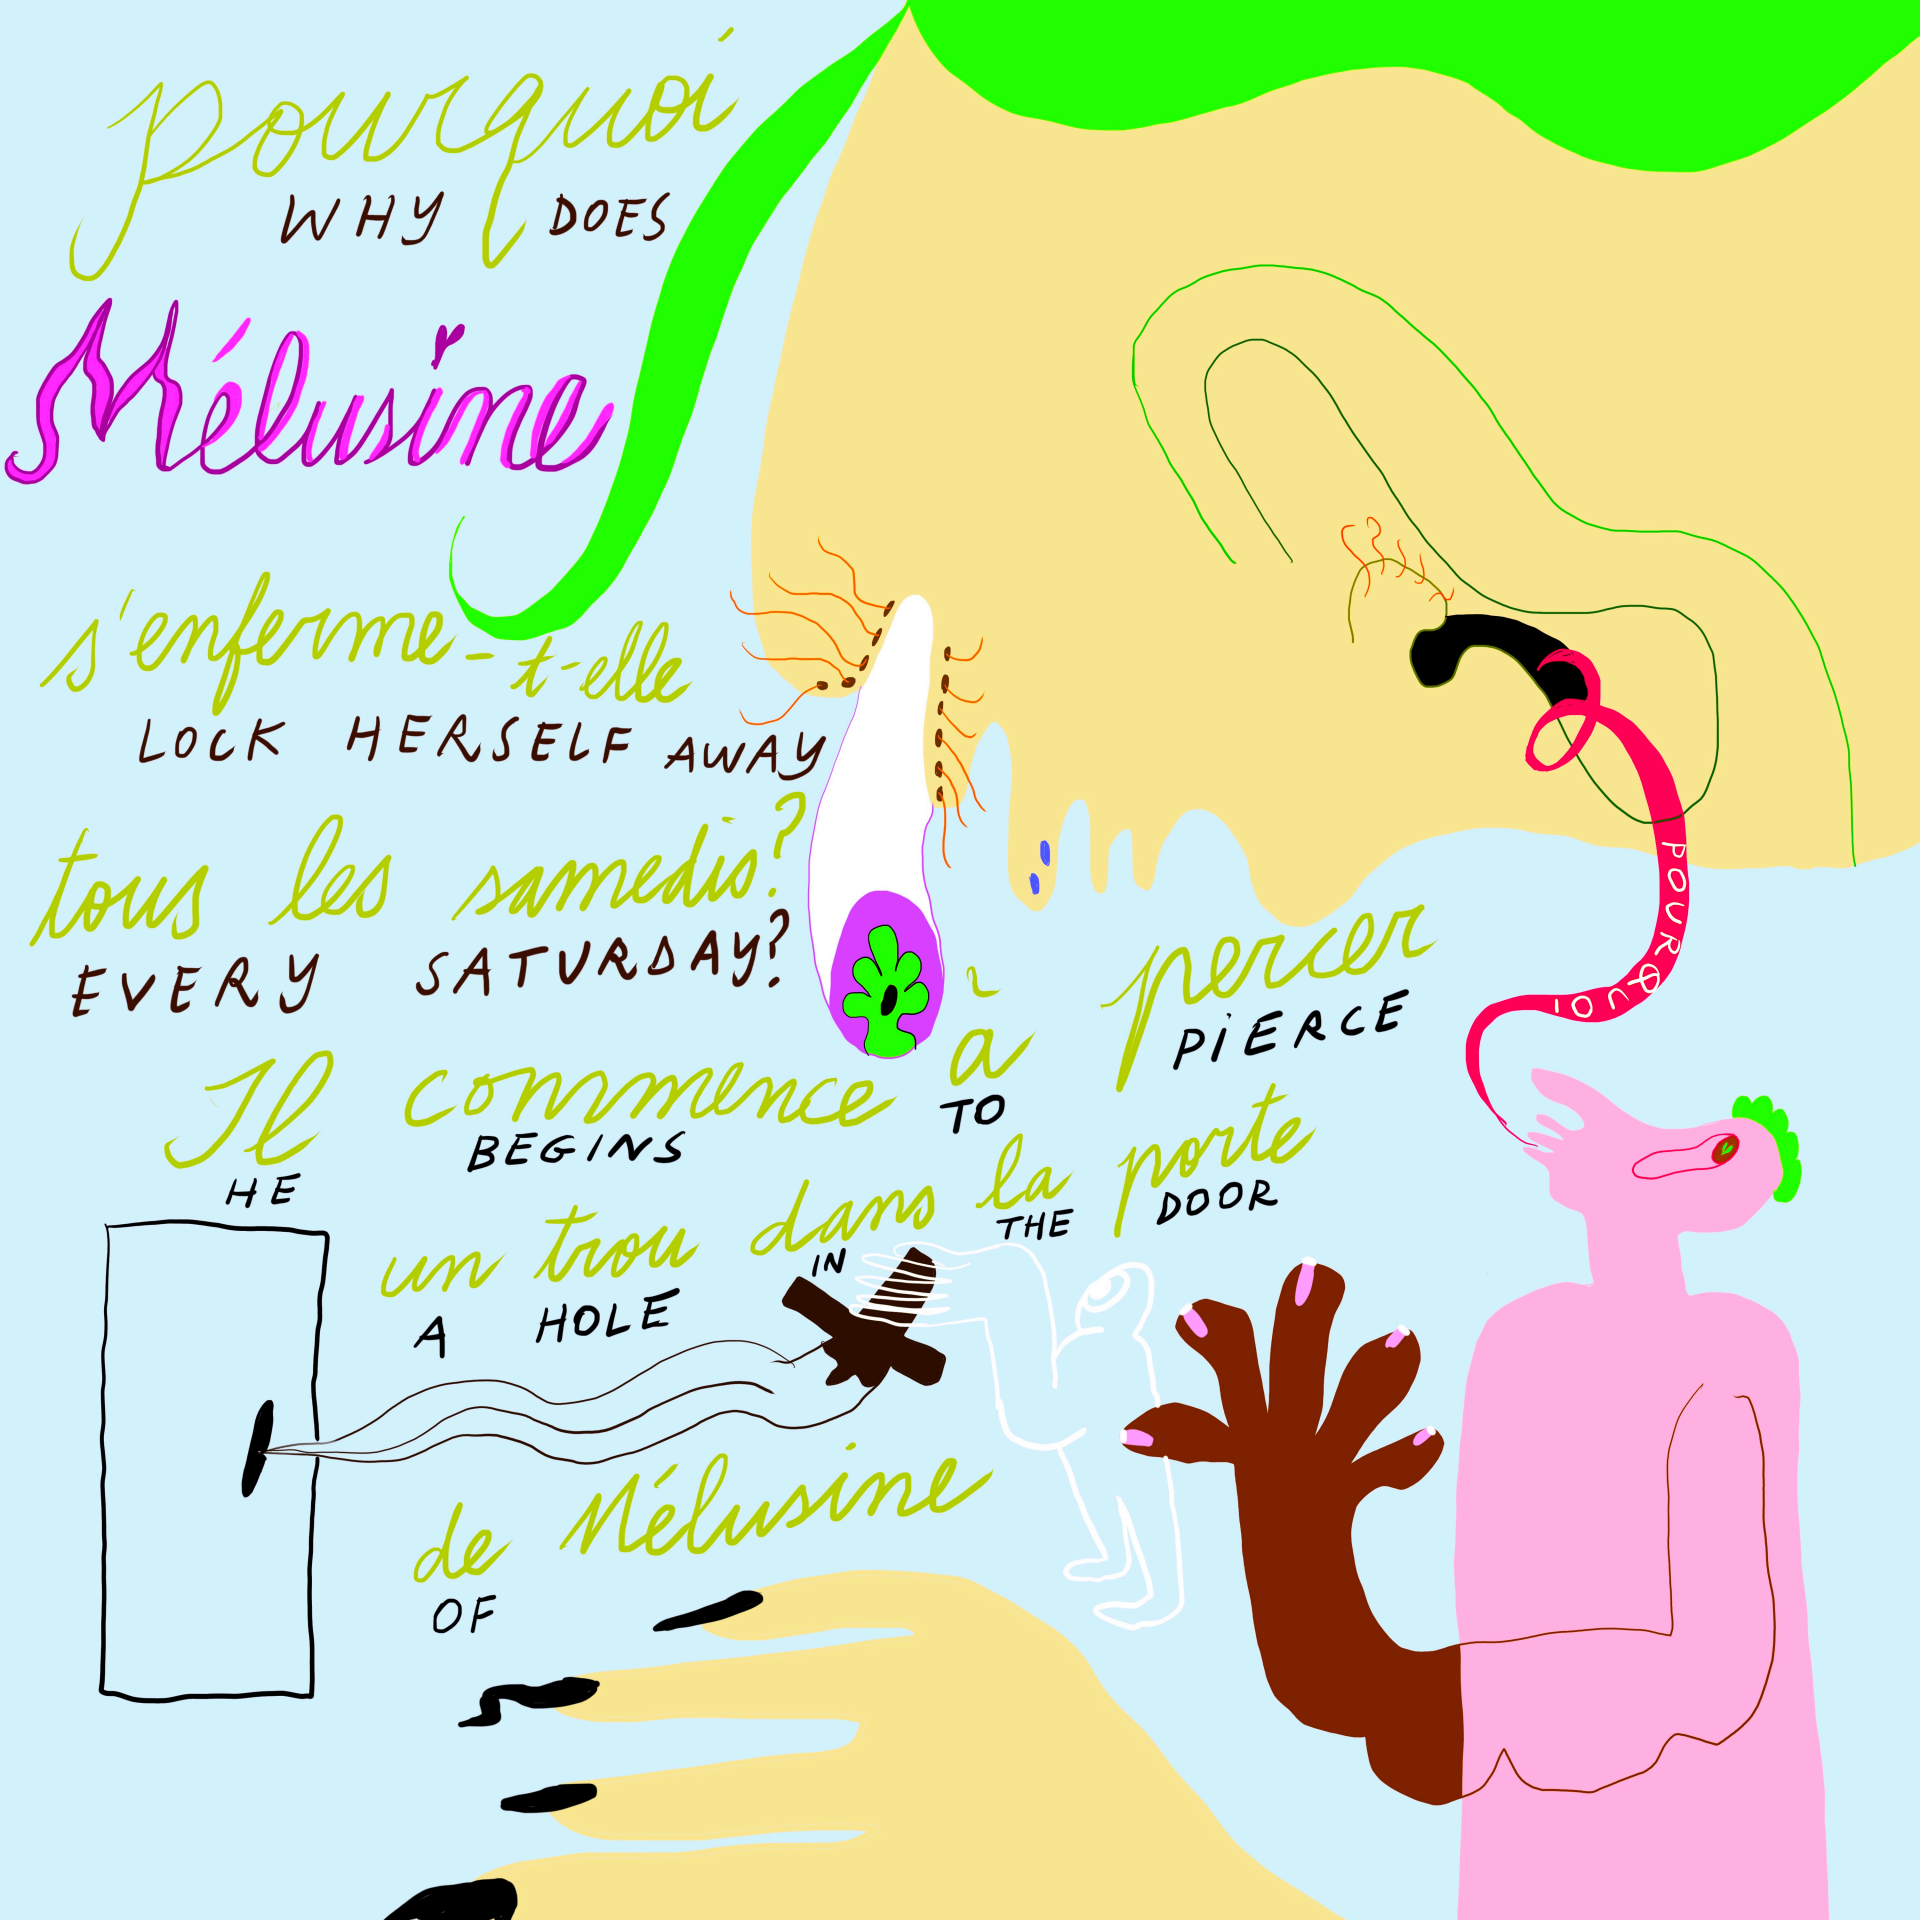 pourquoi
WHY DOES
Mélusine
s'enferme-t-elle
LOCK HERSELF AWAY
tous les samedis?
EVERY SATURDAY?
Il commence à percer
HE BEGINS TO PIERCE
un trou dans la porte
A HOLE IN THE DOOR
de Mélusine
OF
pourquoi